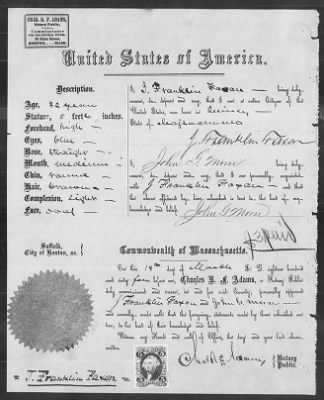 CHAS. B. F. ADAMS,
Notary Public,
Commissioner
BOSTON, MASS.
United States of America.
Description.
Age, 32 years
Stature, 5 feet inches.
Forehead, high
Eyes, blue
Nose, straight
Mouth, medium
Chin, round
Hair, brown
Complexion, Light
Face, oval
I, J. Franklin Faxon being duly
sworn, do depose and say, that I am a native Citizen of the
United States, was born in Quincy,
State of Massachusetts
J. Franklin Faxon
I, John G. being duly
sworn, do depose and say, that I am personally acquainted
with J Franklin Faxon and that the
above affidavit by him subscribed is true, to the best of my
knowledge and belief.
Suffolk,
City of Boston, ss.
Commonwealth of Massachusetts.
On this 18th day of March A. D. eighteen hundred
and sixty four before me, Charles B. F. Adams, a Notary Public
duly commissioned and sworn, in and for said County, personally appeared
J Franklin Faxon and John G.
and severally made oath that the foregoing statements made by them subscribed are
true, to the best of their knowledge and belief.
Witness my Hand and Seal of Office, the day and year above
written.
Notary
Public.
J. Franklin Faxon